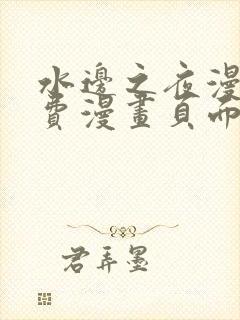 水邊之夜漫
費漫畫頁面
君弄墨